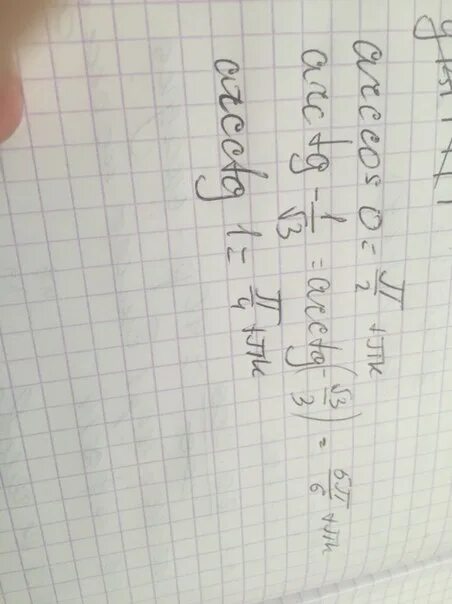 arccos 0 = π/2 + πk
arc tg - 1/√3 = arctg(-√3/3) = 5π/6 + πk
arcctg 1 = π/4 + πk